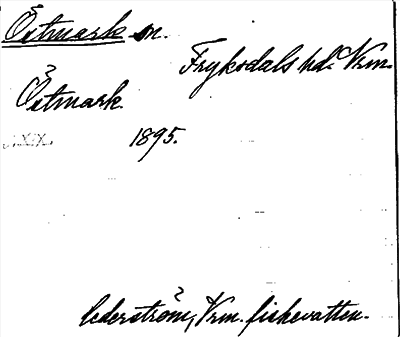 Östmark sn.
Fryksdals hd. Vrm.
Östmark.
1895.
Cederström, Vrm. fiskevatten.